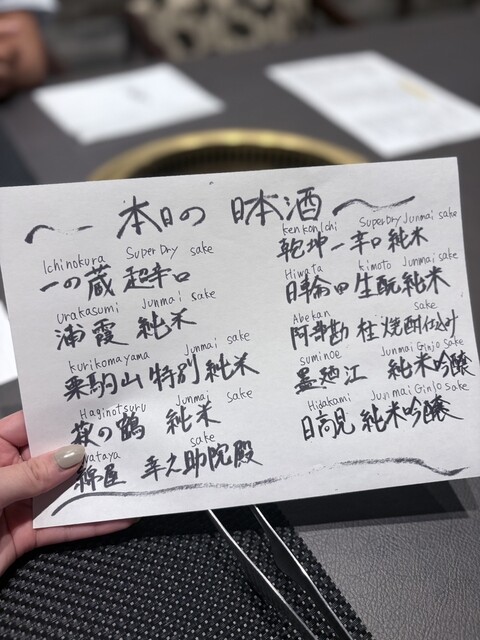 本日の 日本酒
Ichinokura Super Dry sake
一の蔵 超辛口
Urakasumi Junmai sake
浦霞 純米
Kurikomayama Junmai sake
栗駒山 特別純米
Haginotsuru Junmai sake
萩の鶴 純米
ataya sake
綿屋 幸之助院殿
KenKonIchi Super Dry Junmai sake
乾坤一 辛口 純米
Hiwata kimoto Junmai sake
日輪田 生酛純米
Abekan sake
阿部勘 焼酎仕込み
suminoe Junmai Ginjo Sake
墨廼江 純米吟醸
Hidakami Junmai Ginjo Sake
日高見 純米吟醸